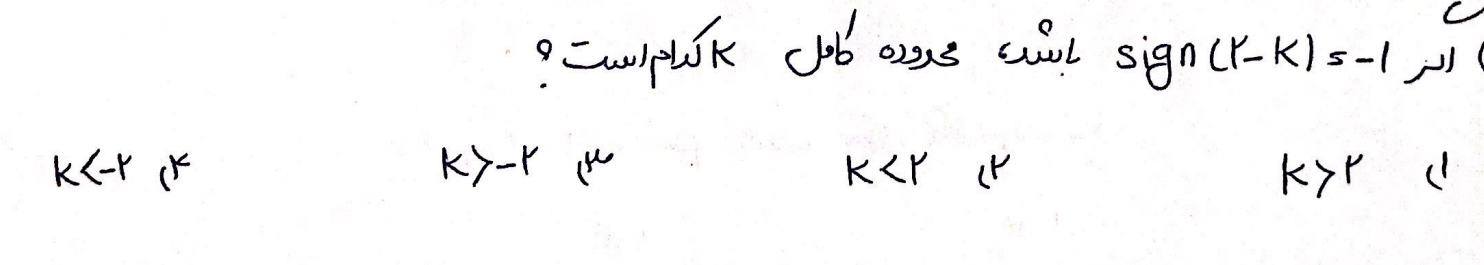 ) اگر sign(۲-k)=-۱ باشد، محدوده کامل k کدام است؟
۱) k>۲ ۲) k<۲ ۳) k>-۲ ۴) k<-۲